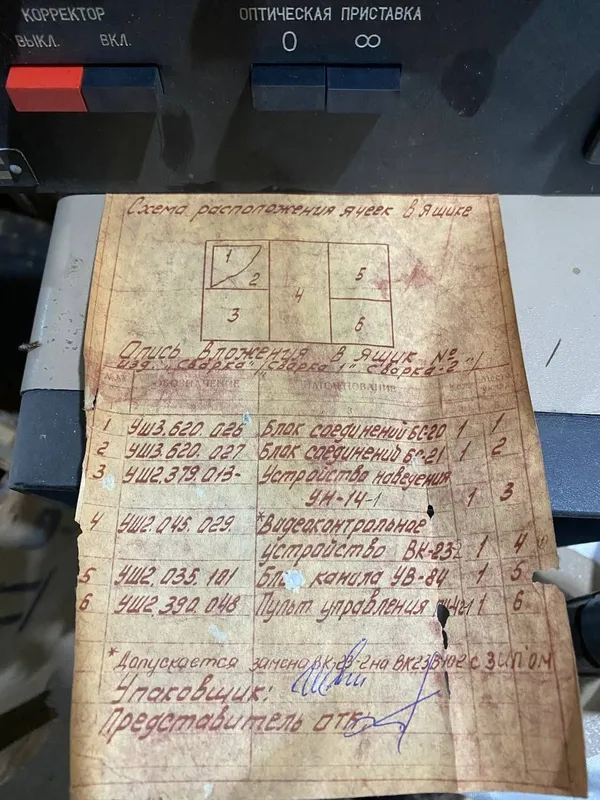 КОРРЕКТОР
ВЫКЛ. ВКЛ.
ОПТИЧЕСКАЯ ПРИСТАВКА
0 ∞
Схема расположения ячеек в Ящике
1
2
3
4
5
6
Опись Вложения в ящик №
изд. "Сварка" /Сварка 1" Сварка-2"/
ОБОЗНАЧЕНИЕ НАИМЕНОВАНИЕ
1 УШ3.620.026 Блок соединений БС-20 1 1
2 УШ3.620.027 Блок соединений БС-21 1 2
3 УШ2.379.013- Устройства наведения
УН-14-1 1 3
4 УШ2.045.029 *Видеоконтрольное
устройство ВК-23 1 4
5 УШ2.035.101 Блок канала УВ-84 1 5
6 УШ2.390.048 Пульт управления 1 6
*Допускается замена на с ЗИПом
Упаковщик:
Представитель ОТК: